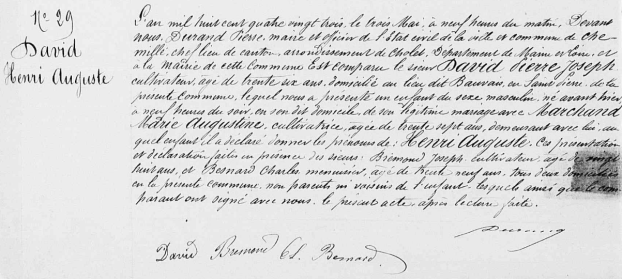 N° 29
David
Henri Auguste
L'an mil huit cent quatre vingt trois, le trois Mai, à neuf heures du matin, Devant
nous, Durand Pierre, maire et officier de l'état civil de la ville et commune de Che
millé, chef lieu de canton, arrondissement de Cholet, Département de Maine et Loire, et
à la Mairie de cette Commune Est comparu le sieur David Pierre Joseph
cultivateur, âgé de trente six ans, domicilié au lieu dit Bauvais, en Saint Pierre, de la
présente Commune, lequel nous a présenté un enfant du sexe masculin, né avant hier
à neuf heures du soir, en son dit domicile, de son légitime mariage avec Marchand
Marie Augustine, cultivatrice, âgée de trente sept ans, demeurant avec lui; au
quel enfant il a déclaré donner les prénoms de: Henri Auguste. Ces présentation
et déclaration faites en présence des sieurs: Bremond Joseph cultivateur, âgé de vingt
huit ans, et Besnard Charles menuisier, âgé de trente neuf ans, tous deux domiciliés
en la présente commune, non parents, ni voisins de l'enfant, lesquels ainsi que le com
parant ont signé avec nous, le présent acte après lecture faite.
Durand
David Bremond Ch. Besnard